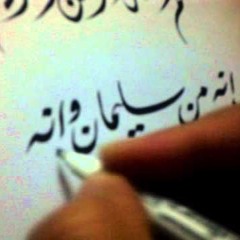 إنه من سليمان وإنه